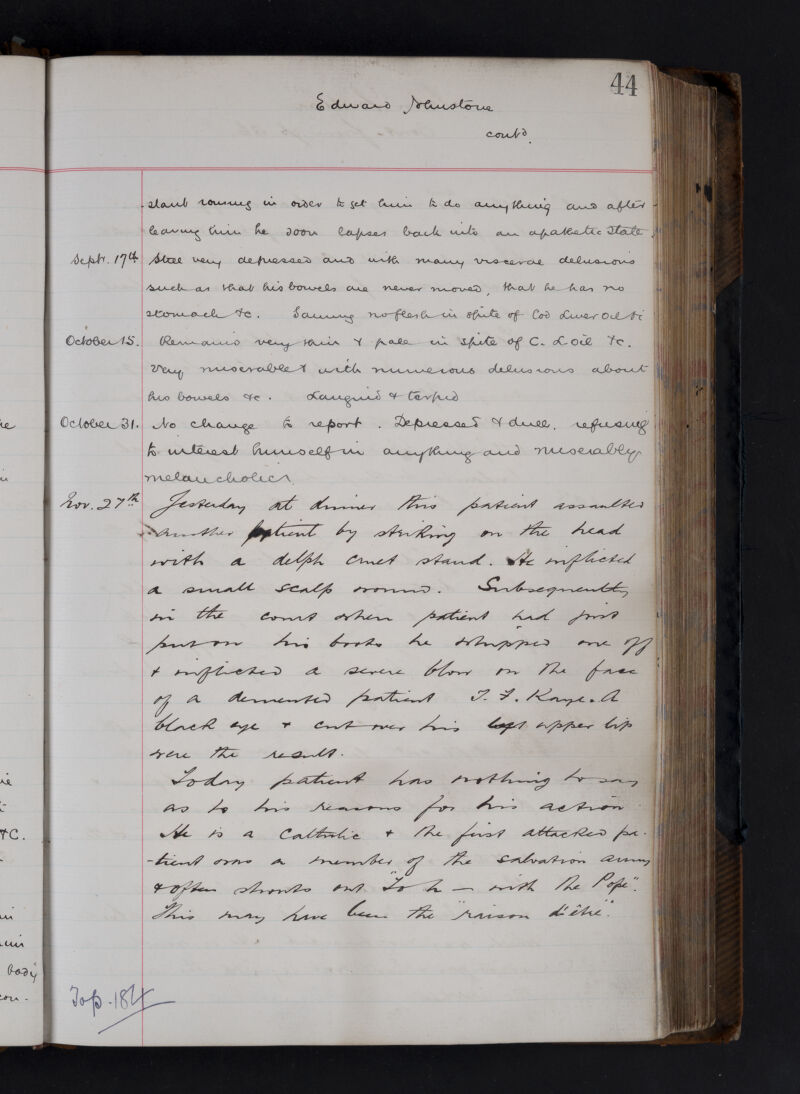 44
Edward Johnstone
contd.
-stant rousing in order to get him to do anything and after
leaving him he soon lapses back into an apathetic state.
Sept. 17th Still very depressed and with many visceral delusions
such as that his bowels are never moved, that he has no
stomach &c. Gaining no flesh in spite of Cod Liver Oil &c
October 15. Remains very thin & pale in spite of C. L oil &c.
Very miserable & with numerous delusions about
his bowels &c. Languid & torpid
October 31. No change to report. Depressed & dull, refusing
to interest himself in anything and miserably
melancholic.
Nov. 27th Yesterday at dinner this patient assaulted
another patient by striking on the head
with a delph cruet stand. He inflicted
a small scalp wound. Subsequently
in the court when patient had just
put on his boots he whipped one off
& inflicted a severe blow on the face
of a demented patient T. F. Kaye. A
black eye & cut over his upper lip
were the result.
Today patient has nothing to say
as to his reasons for his action
He is a Catholic & the first attacked pa-
-tient was a member of the salvation army
& often shouts out "To h— with the Pope".
This may have been the "raison d'être".
To p. 184
he
in
ie
&c.
in
him
body
con.